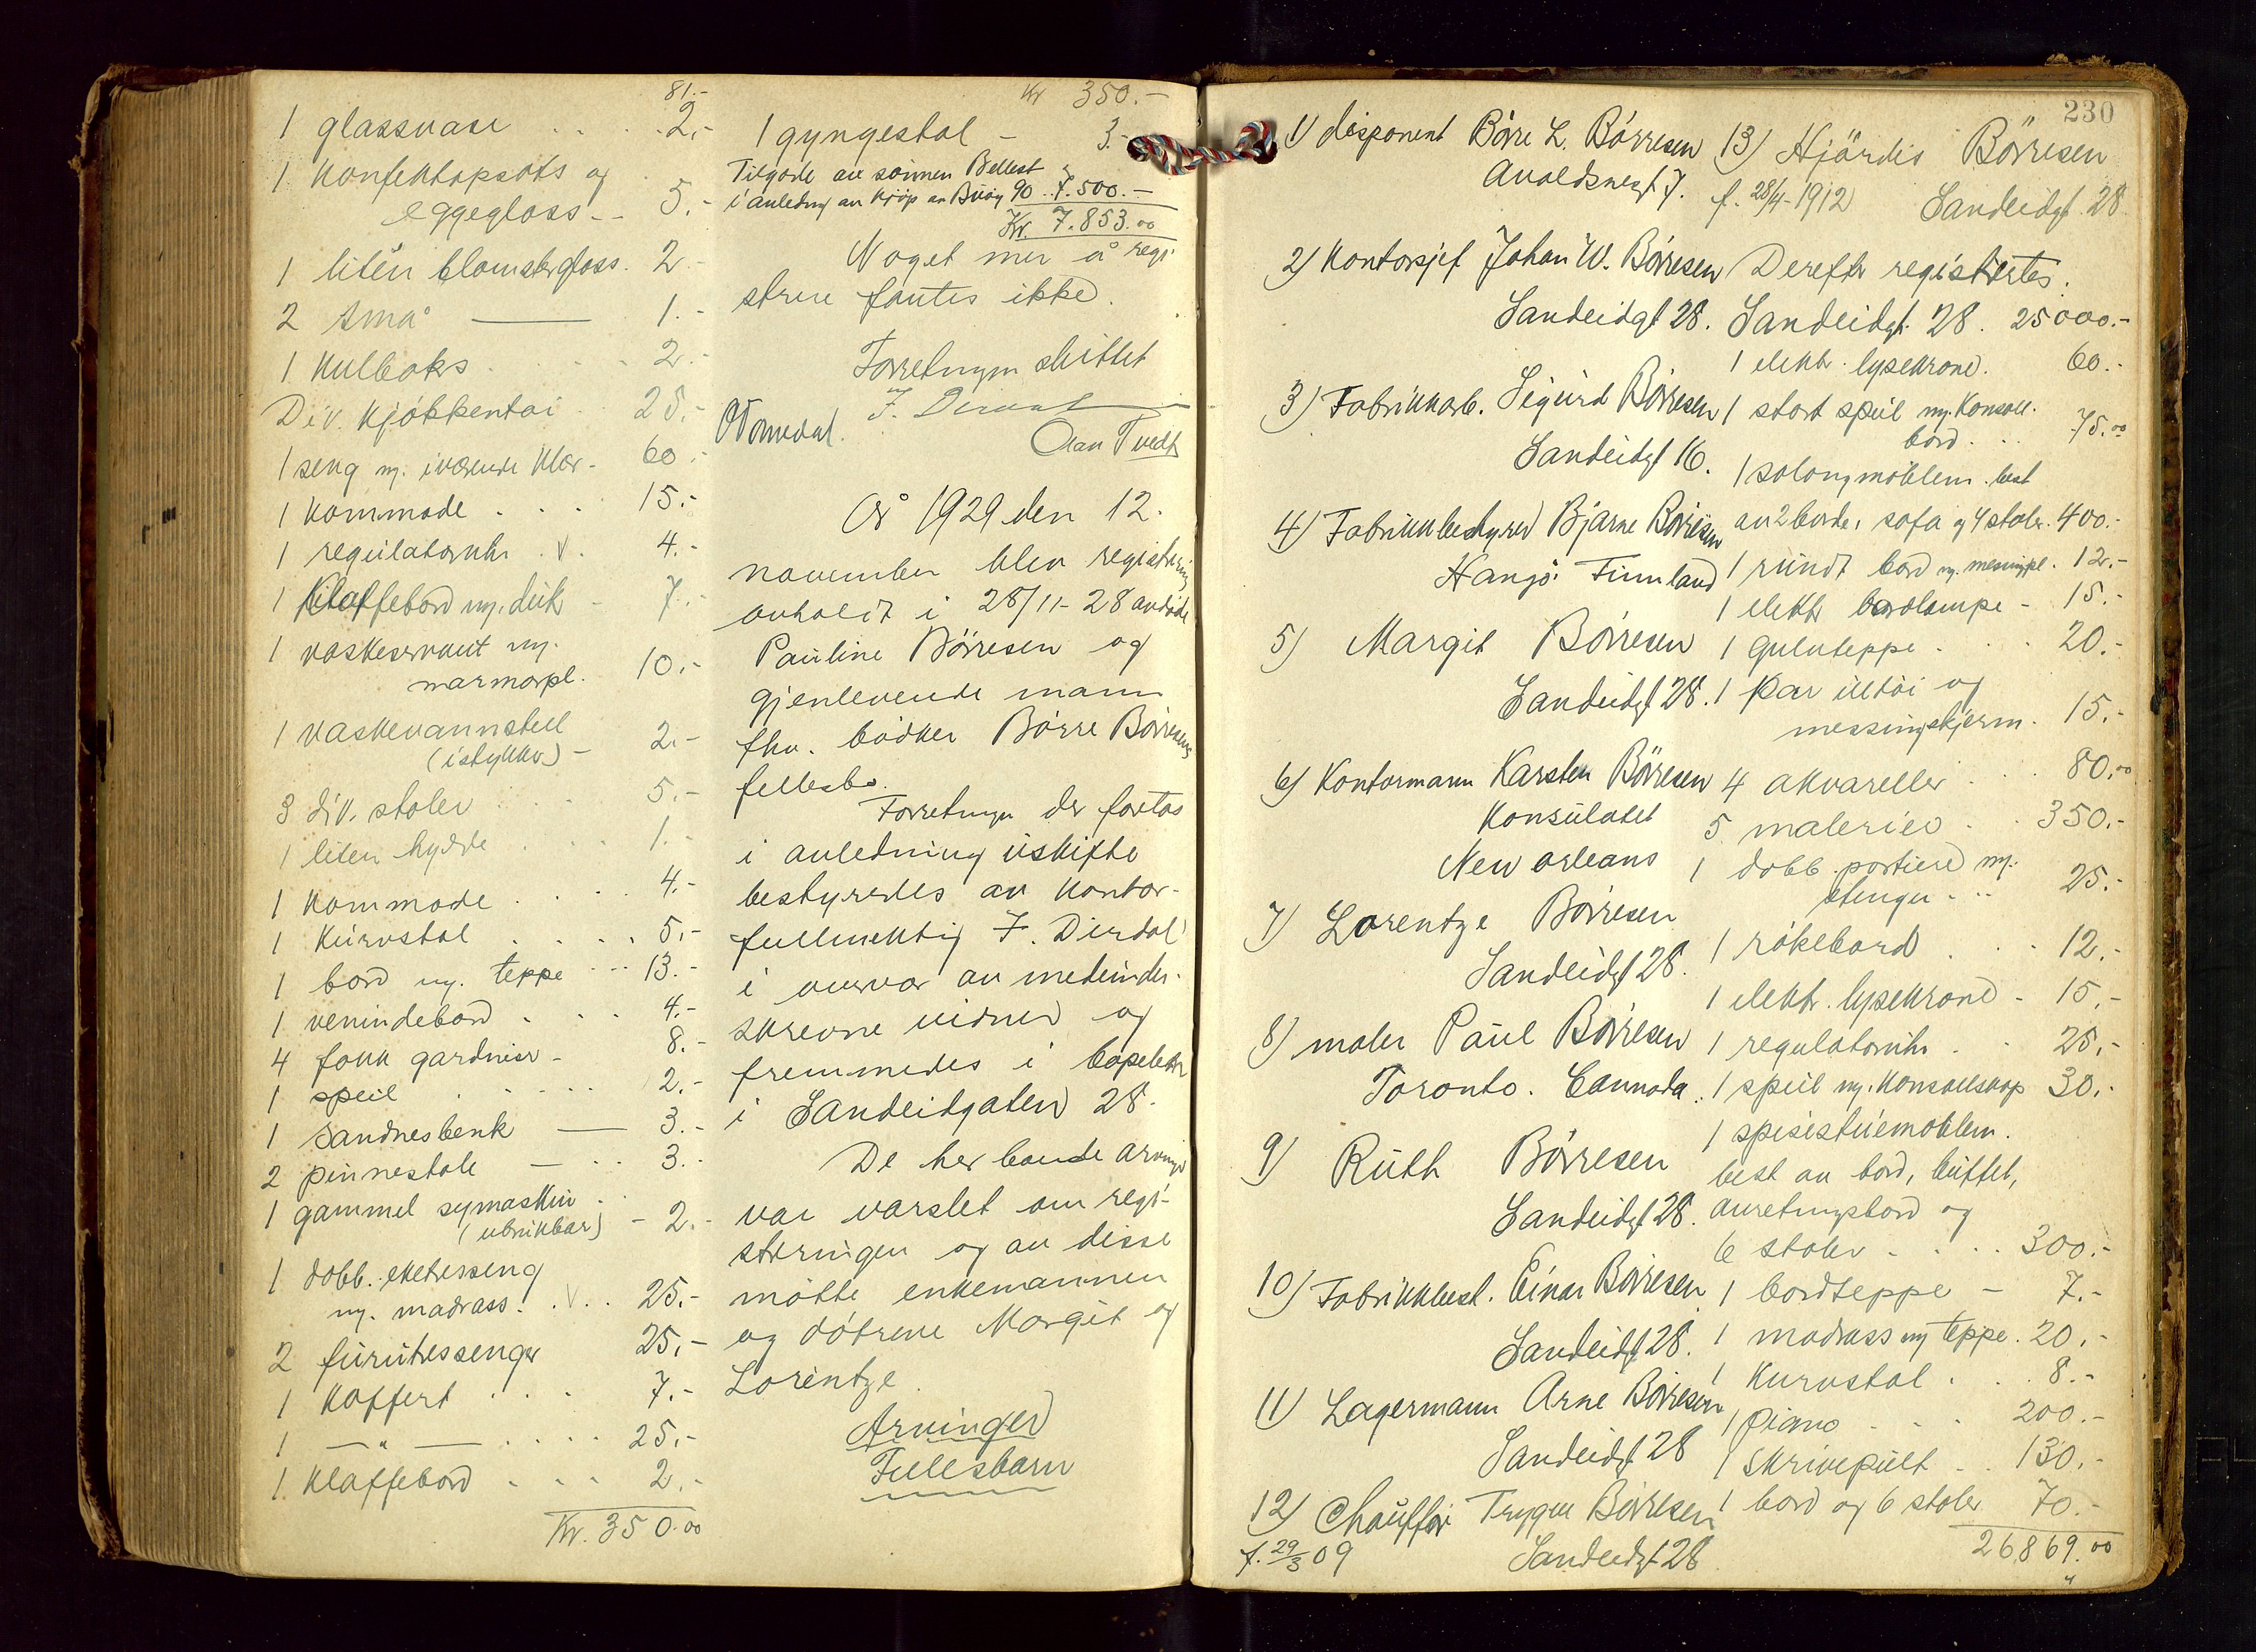 81.-
1 glassvase . . . . 2.-
1 konfektopsats og
eggeglass - - 5.-
1 liten blomsterglass. 2.-
2 små — 1.-
1 kulboks . . . . 2.-
Div. kjökkentöi . . 25.-
1 seng m. iværende klær - 60.-
1 kommode . . . 15.-
1 regulatoruhr . v . 4.-
1 klaffebord m. duk - 7.-
1 vaskeservant m.
marmorpl. 10.-
1 vaskevannstell
(i stykker) - 2.-
3 div. stoler . . . 5.-
1 liten hylde . . . 1.-
1 kommode . . . . 4.-
1 kurvstol . . . . 5.-
1 bord m. teppe . . . 13.-
1 venindebord . . . 4.-
4 fakk gardiner - 8.-
1 speil . . . . 2.-
1 Sandnesbenk — 3.-
2 pinnestole — . . 3.-
1 gammel symaskin . .
(ubrukbar) - 2.-
1 dobb. eketresseng
m. madrass. . v . . 25.-
2 furutressenger 25.-
1 koffert . . . 7.-
1 — " — . . . . 25.-
1 klaffebord . . . . 2.-
Kr. 350.00
Kr 350.-
1 gyngestol - 3.-
Tilgode av sönnen
i anledning av kjöp av 90 7.500.-
Kr. 7.853.00
Noget mer å regi-
strere fantes ikke.
Forretningen sluttet
Olav Tvedt
År 1929 den 12.
november blev registrering
avholdt i 28/11-28 avdöde
Pauline Börresen og
gjenlevende mann
fhv. bödker Börre Börresens
fellesbo.
Forretningen der foretas
i anledning uskifte
bestyredes av kontor-
fullmektig F. Dirdal
i overvær av medunder-
skrevne vidner og
fremmedes i
i Sandeidgaten 28.
De her boende arvinger
var varslet om regi-
streringen og av disse
mötte enkemannen
og dötrene Margit og
Lorentze.
Arvinger
Fellesbarn
230
1) disponent Börre L. Börresen
Avaldsnesgt 7.
2) Kontorsjef Johan W. Börresen
Sandeidgt 28.
3) Fabrikkarb. Sigurd Börresen
Sandeidgt 16.
4) Fabrikkbestyrer Bjarne Börresen
Hangö Finnland
5) Margit Börresen
Sandeidgt 28.
6) Kontormann Karsten Börresen
Konsulatet
New Orleans
7) Lorentze Börresen
Sandeidgt 28.
8) maler Paul Börresen
Toronto. Cannada.
9) Ruth Börresen
Sandeidgt 28.
10) Fabrikkbest. Einar Börresen
Sandeidgt 28.
11) Lagermann Arne Börresen
Sandeidgt 28
12) Chaufför Trygve Börresen
f. 29/3 09 Sandeidgt 28
13) Hjördis Börresen
f. 28/4-1912 Sandeidgt. 28
Derefter registrertes.
Sandeidgt. 28. 25000.-
1 elektr. lysekrone. 60.-
1 stort speil m. konsoll-
bord. . . 75.00
1 salongmöblem. best
av 2 borde, sofa og 4 stoler. 400.-
1 rundt bord m. messingpl. 12.-
1 elektr bordlampe - 15.-
1 gulvteppe . . . 20.-
1 kar ildtöi og
messingskjerm. 15.-
4 akvareller . . . 80.00
5 malerier . . 350.-
1 dobb. portiere m.
stenger . . . 25.-
1 rökebord . . . 12.-
1 elektr. lysekrone - 15.-
1 regulatoruhr . . 25.-
1 speil m. konsollskap 30.-
1 spisestuemöblem.
best av bord, buffet,
anretningsbord og
6 stoler . . . . 300.-
1 bordteppe - 7.-
1 madrass m teppe. 20.-
1 kurvstol . . . 8.-
1 piano . . . . 200.-
1 skrivepult . . 130.-
1 bord og 6 stoler 70.-
26869.00